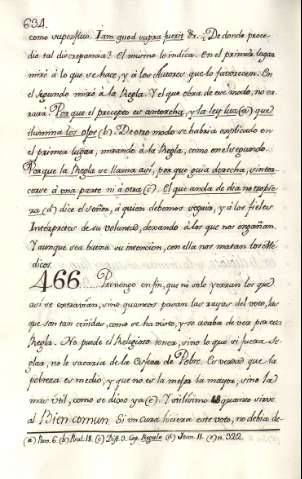 634.
como superfluo. Iam quod supra fuerit &c. ¿De donde procedie
tal discrepancia? El mismo lo indica. En el primer lugar
miró à lo que se hace, y à los Autores, que lo favorecen. En
el segundo miró à la Regla. Y el que obra de ese modo, no errará:
Por que el precepto es antorcha, y la ley luz (a) que
ilumina los ojos (b). De otro modo se habria explicado en
el primer lugar, mirando à la Regla, como en el segundo.
Porque la Regla se llama asi, por que guia derecha, sin torcerse
à una parte ni à otra (c). El que anda de dia no tropieza
(d) dice el Señor, à quien debemos seguir, y à los fieles
Interpretes de su voluntad, dexando à los que nos engañan.
Y aunque sea buena su intencion, con ella nos matan los Medicos.
466. Prevengo en fin, que ni solo yerran los que
asi se extravian, sino quantos pasan las rayas del voto, las
que son tan ceñidas, como se ha visto, y se acaba de ver por esta
Regla. No puede el Religioso tener, sino lo que si fuera Seglar,
no le sacaria de la Esfera de Pobre. Es verdad que la
pobreza es medio, y que no es la mejor la mayor, sino la
mas util, como se dixo ya (e). Y utilisimo es quanto sirve
al Bien comun. Si un Cura hiciera este voto, no debia de
(a) Prov. 6. (b) Psal. 18. (c) Dist. 3. Cap. Regula (d) Joan. 11. (e) n. 322.